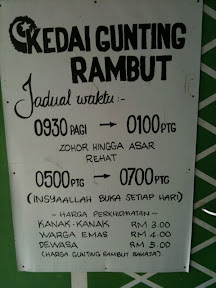 KEDAI GUNTING
RAMBUT
Jadual waktu:-
0930 PAGI → 0100 PTG
ZOHOR HINGGA ASAR
REHAT
0500 PTG → 0700 PTG
(INSYAALLAH BUKA SETIAP HARI)
- HARGA PERKHIDMATAN -
KANAK-KANAK RM 3.00
WARGA EMAS RM 4.00
DEWASA RM 5.00
(HARGA GUNTING RAMBUT SAHAJA)